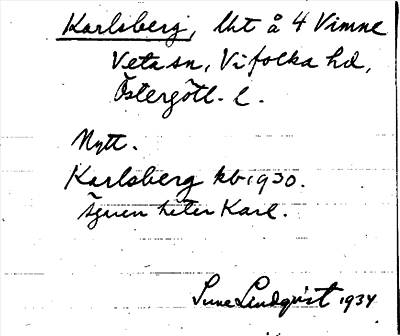 Karlsberg, lht å 4 Vimne
Veta sn, Vifolka hd,
Östergötl. l.
Nytt.
Karlsberg kb 1930.
Ägaren heter Karl.
Sune Lindqvist 1934